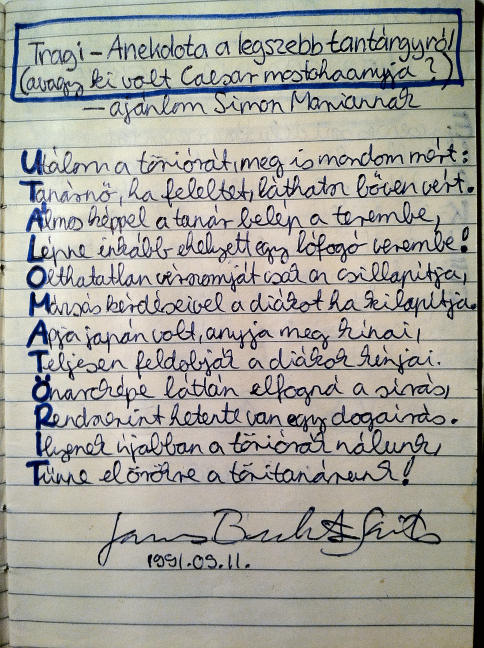 Tragi-Anekdota a legszebb tantárgyról
(avagy ki volt Caesar mostohaanyja?)
— ajánlom Simon Mariannak
Utálom a töriórát, meg is mondom mért:
Tanárnő, ha feleltet, láthatsz bőven vért.
Álmos képpel a tanár belép a terembe,
Lépne inkább ehelyett egy lófogó verembe!
Olthatatlan vérszomját csak an csillapítja,
Marsás kérdéseivel a diákot ha kilapítja.
Apja japán volt, anyja meg kínai,
Teljesen feldobják a diákok kínjai.
Önarcképe láttán elfogná a sírás,
Rendszerint hetente van egy dogaírás.
Ilyenek újabban a töriórák nálunk,
Tűnne el örökre a töritanárunk!
1991.09.11.